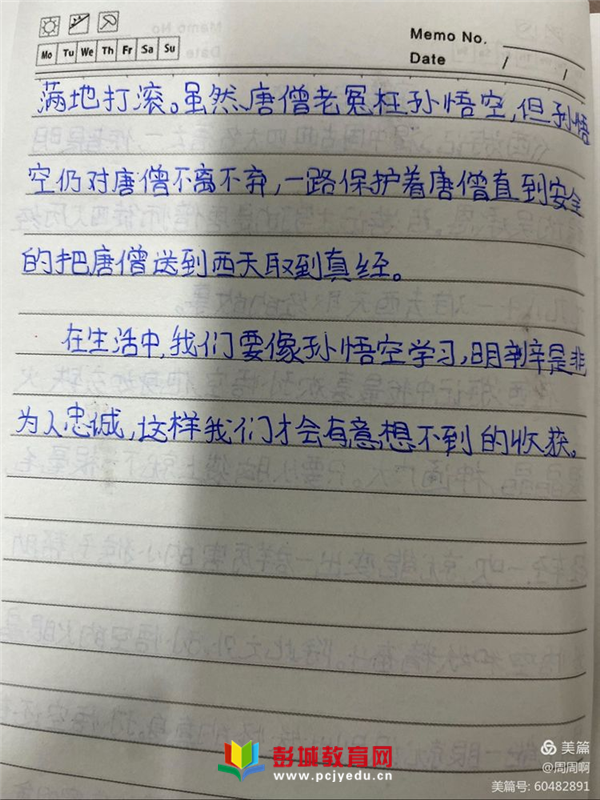 Memo No.
Mo Tu We Th Fr Sa Su
Date / /
满地打滚。虽然唐僧老冤枉孙悟空,但孙悟
空仍对唐僧不离不弃,一路保护着唐僧直到安全
的把唐僧送到西天取到真经。
在生活中,我们要像孙悟空学习,明辨是非
为人忠诚,这样我们才会有意想不到的收获。
彭城教育网
www.pcjyedu.cn
美篇
@周周啊
美篇号: 60482891